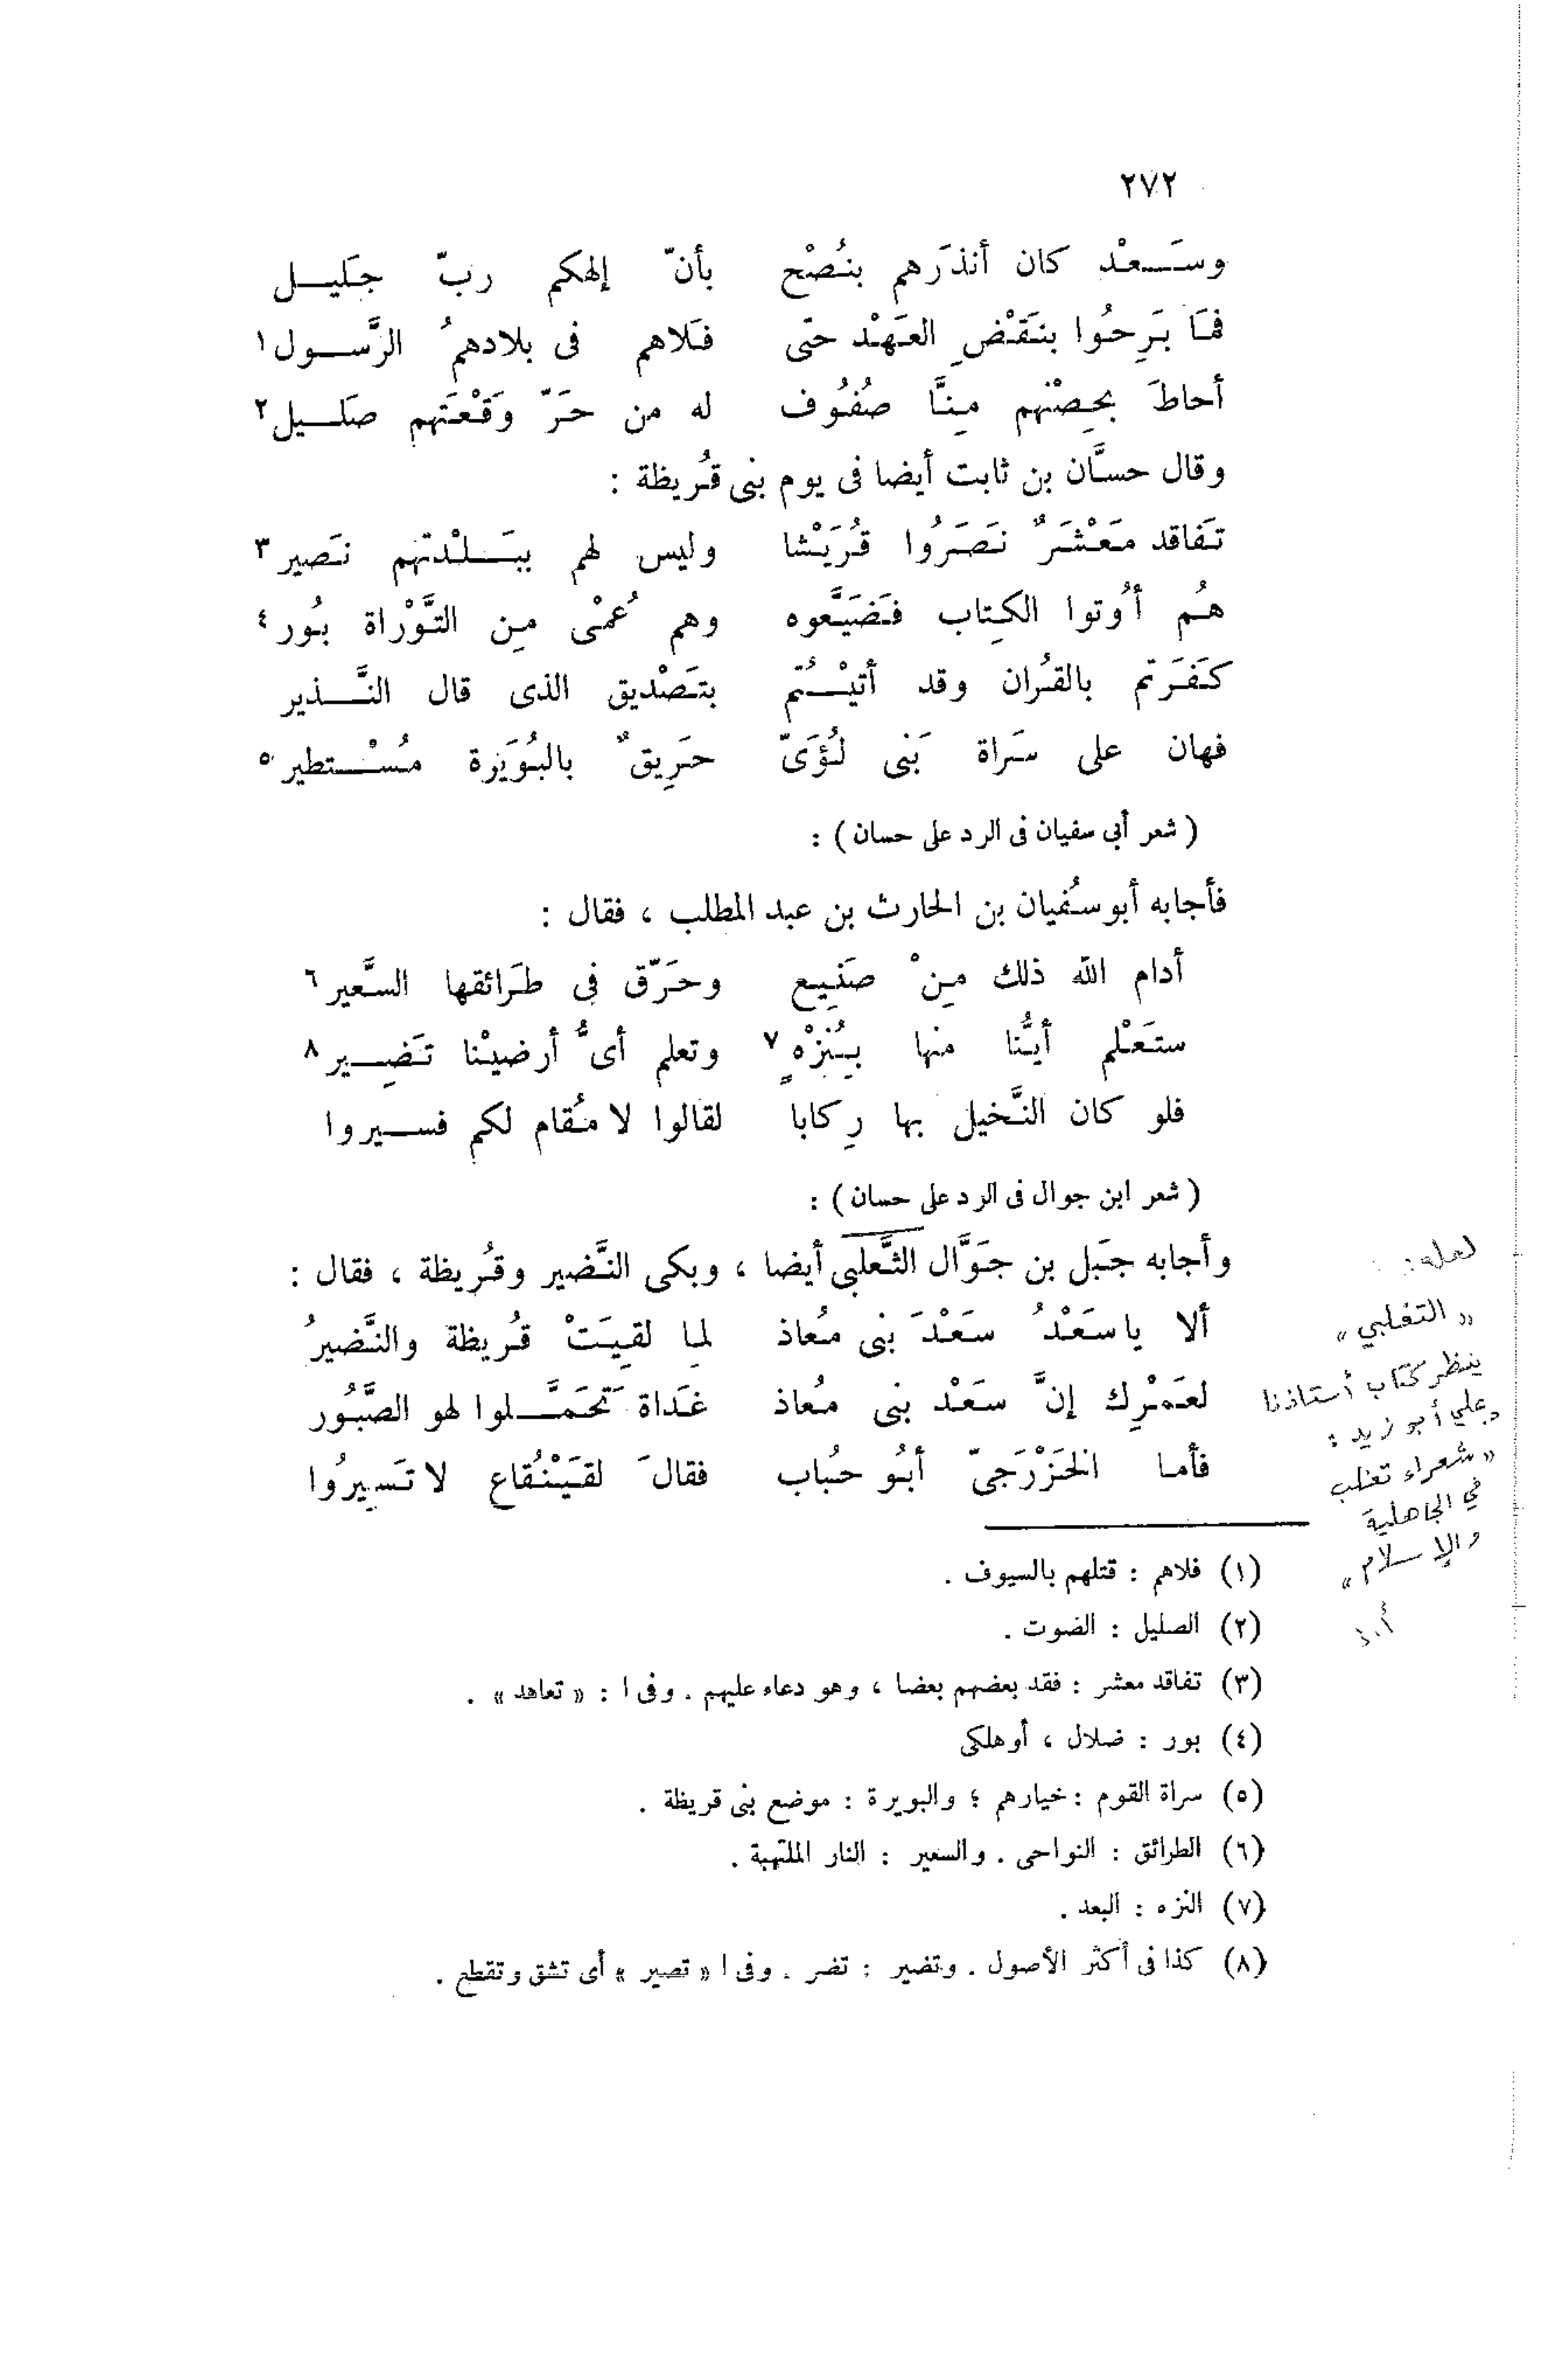 ٢٧٢
وسَعْد كان أنذَرهم بنُصْح بأنّ إلهكم ربّ جَليل
فمَا بَرِحُوا بنَقْضِ العَهْد حتى فَلاهم فى بلادهمُ الرَّسول١
أحاطَ بحِصْنهم مِنَّا صُفُوف له من حَرّ وَقْعَتهم صَليل٢
وقال حسَّان بن ثابت أيضا فى يوم بنى قُريظة :
تَفاقد مَعْشَرٌ نَصَرُوا قُرَيْشا وليس لهم ببَلْدتهم نَصير٣
هُم أُوتوا الكِتاب فَضَيَّعوه وهم عُمْى مِن التَّوْراة بُور٤
كَفَرتم بالقُران وقد أتيْتُم بتَصْديق الذى قال النَّذير
فهان على سَراة بَنى لُؤَىّ حَرِيقٌ بالبُوَيْرة مُسْتطير٥
( شعر أبى سفيان فى الرد على حسان ) :
فأجابه أبو سُفيان بن الحارث بن عبد المطلب ، فقال :
أدام الله ذلك مِنْ صَنِيع وحَرّق فى طَرائقها السَّعير٦
ستَعْلم أيُّنا منها بِنُزْهٍ٧ وتعلم أىُّ أرضيْنا تَضِير٨
فلو كان النَّخيل بها رِكابا لقالوا لا مُقام لكم فسيروا
( شعر ابن جوال فى الرد على حسان ) :
وأجابه جَبل بن جَوَّال الثَّعلبى أيضا ، وبكى النَّضير وقُريظة ، فقال :
ألا يا سَعْدُ سَعْدَ بنى مُعاذ لِما لقِيَتْ قُريظة والنَّضيرُ
لعَمْرِك إنَّ سَعْد بنى مُعاذ غَداةَ تَحَمَّلوا لهو الصَّبُور
فأما الخَزْرَجىّ أبُو حُباب فقالَ لقَيْنُقاع لا تَسِيرُوا
لعله :
« التغلبي »
ينظر كتاب أستاذنا
د. علي أبو زيد :
« شعراء تغلب
في الجاهلية
والإسلام »
(١) فلاهم : قتلهم بالسيوف .
(٢) الصليل : الصوت .
(٣) تفاقد معشر : فقد بعضهم بعضا ، وهو دعاء عليهم . وفى ا : « تعاهد » .
(٤) بور : ضلال ، أو هلكى
(٥) سراة القوم : خيارهم ؛ والبويرة : موضع بنى قريظة .
(٦) الطرائق : النواحى . والسعير : النار الملتهبة .
(٧) النزه : البعد .
(٨) كذا فى أكثر الأصول . وتضير : تضر . وفى ا « تصير » أى تشق وتقطع .